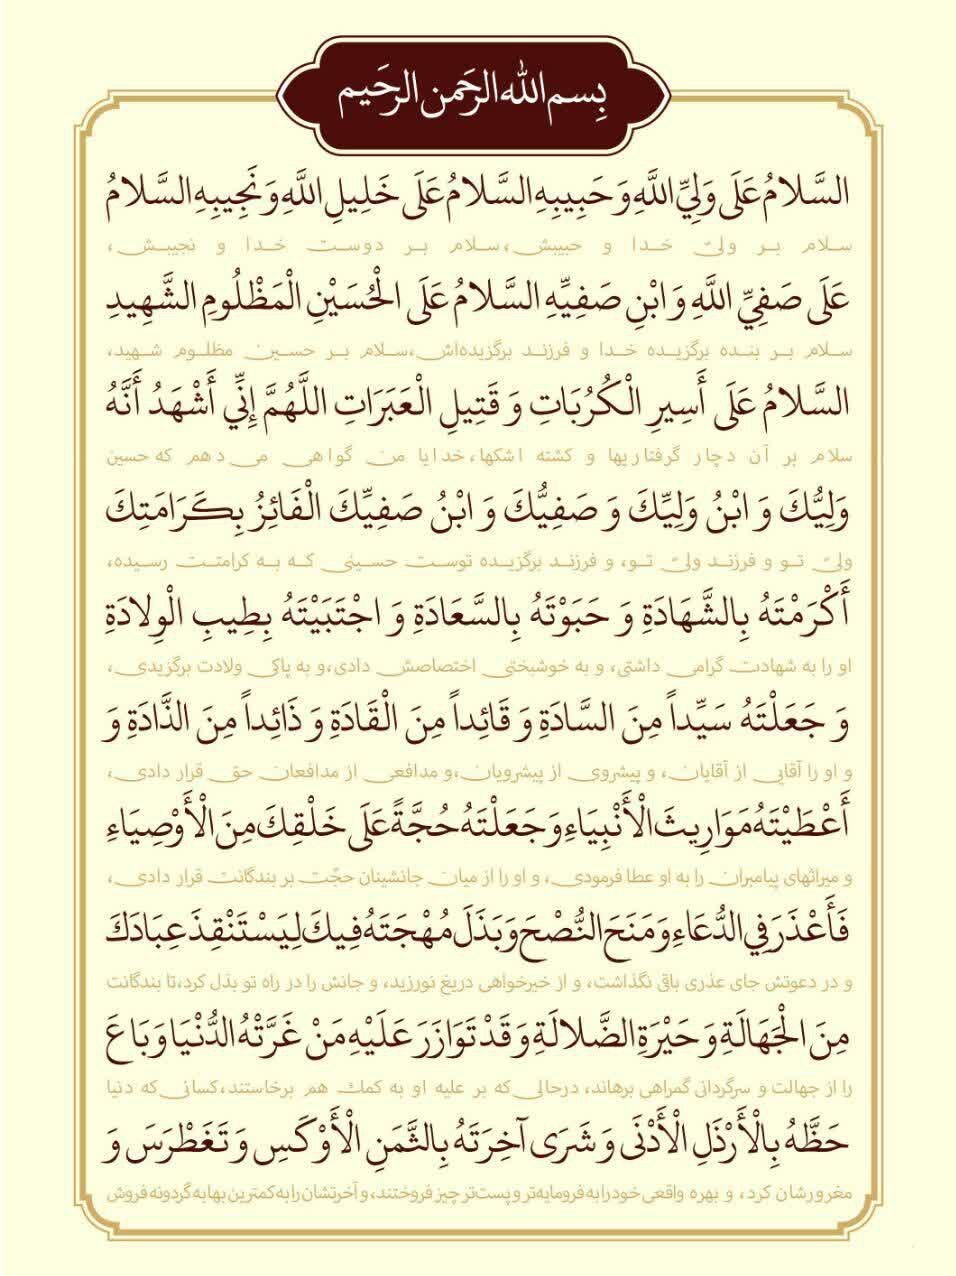 بِسم الله الرَحمن الرحَیم
السَّلامُ عَلَى وَلِيِّ اللَّهِ وَ حَبِيبِهِ السَّلامُ عَلَى خَلِيلِ اللَّهِ وَ نَجِيبِهِ السَّلامُ
سلام بر ولیّ خدا و حبیبش، سلام بر دوست خدا و نجیبش،
عَلَى صَفِيِّ اللَّهِ وَ ابْنِ صَفِيِّهِ السَّلامُ عَلَى الْحُسَيْنِ الْمَظْلُومِ الشَّهِيدِ
سلام بر بنده برگزیده خدا و فرزند برگزیده‌اش، سلام بر حسین مظلوم شهید،
السَّلامُ عَلَى أَسِيرِ الْكُرُبَاتِ وَ قَتِيلِ الْعَبَرَاتِ اللَّهُمَّ إِنِّي أَشْهَدُ أَنَّهُ
سلام بر آن دچار گرفتاریها و کشته اشکها، خدایا من گواهی می دهم که حسین
وَلِيُّكَ وَ ابْنُ وَلِيِّكَ وَ صَفِيُّكَ وَ ابْنُ صَفِيِّكَ الْفَائِزُ بِكَرَامَتِكَ
ولیّ تو و فرزند ولیّ تو، و فرزند برگزیده توست حسینی که به کرامتت رسیده،
أَكْرَمْتَهُ بِالشَّهَادَةِ وَ حَبَوْتَهُ بِالسَّعَادَةِ وَ اجْتَبَيْتَهُ بِطِيبِ الْوِلادَةِ
او را به شهادت گرامی داشتی، و به خوشبختی اختصاصش دادی، و به پاکی ولادت برگزیدی،
وَ جَعَلْتَهُ سَيِّداً مِنَ السَّادَةِ وَ قَائِداً مِنَ الْقَادَةِ وَ ذَائِداً مِنَ الذَّادَةِ وَ
و او را آقایی از آقایان، و پیشروی از پیشرویان، و مدافعی از مدافعان حق قرار دادی،
أَعْطَيْتَهُ مَوَارِيثَ الْأَنْبِيَاءِ وَ جَعَلْتَهُ حُجَّةً عَلَى خَلْقِكَ مِنَ الْأَوْصِيَاءِ
و میراثهای پیامبران را به او عطا فرمودی، و او را از میان جانشینان حجّت بر بندگانت قرار دادی،
فَأَعْذَرَ فِي الدُّعَاءِ وَ مَنَحَ النُّصْحَ وَ بَذَلَ مُهْجَتَهُ فِيكَ لِيَسْتَنْقِذَ عِبَادَكَ
و در دعوتش جای عذری باقی نگذاشت، و از خیرخواهی دریغ نورزید، و جانش را در راه تو بذل کرد، تا بندگانت
مِنَ الْجَهَالَةِ وَ حَيْرَةِ الضَّلالَةِ وَ قَدْ تَوَازَرَ عَلَيْهِ مَنْ غَرَّتْهُ الدُّنْيَا وَ بَاعَ
را از جهالت و سرگردانی گمراهی برهاند، درحالی که بر علیه او به کمک هم برخاستند، کسانی که دنیا
حَظَّهُ بِالْأَرْذَلِ الْأَدْنَى وَ شَرَى آخِرَتَهُ بِالثَّمَنِ الْأَوْكَسِ وَ تَغَطْرَسَ وَ
مغرورشان کرد، و بهره واقعی خود را به فرومایه‌تر و پست‌تر چیز فروختند، و آخرتشان را به کمترین بها به گردونه فروش